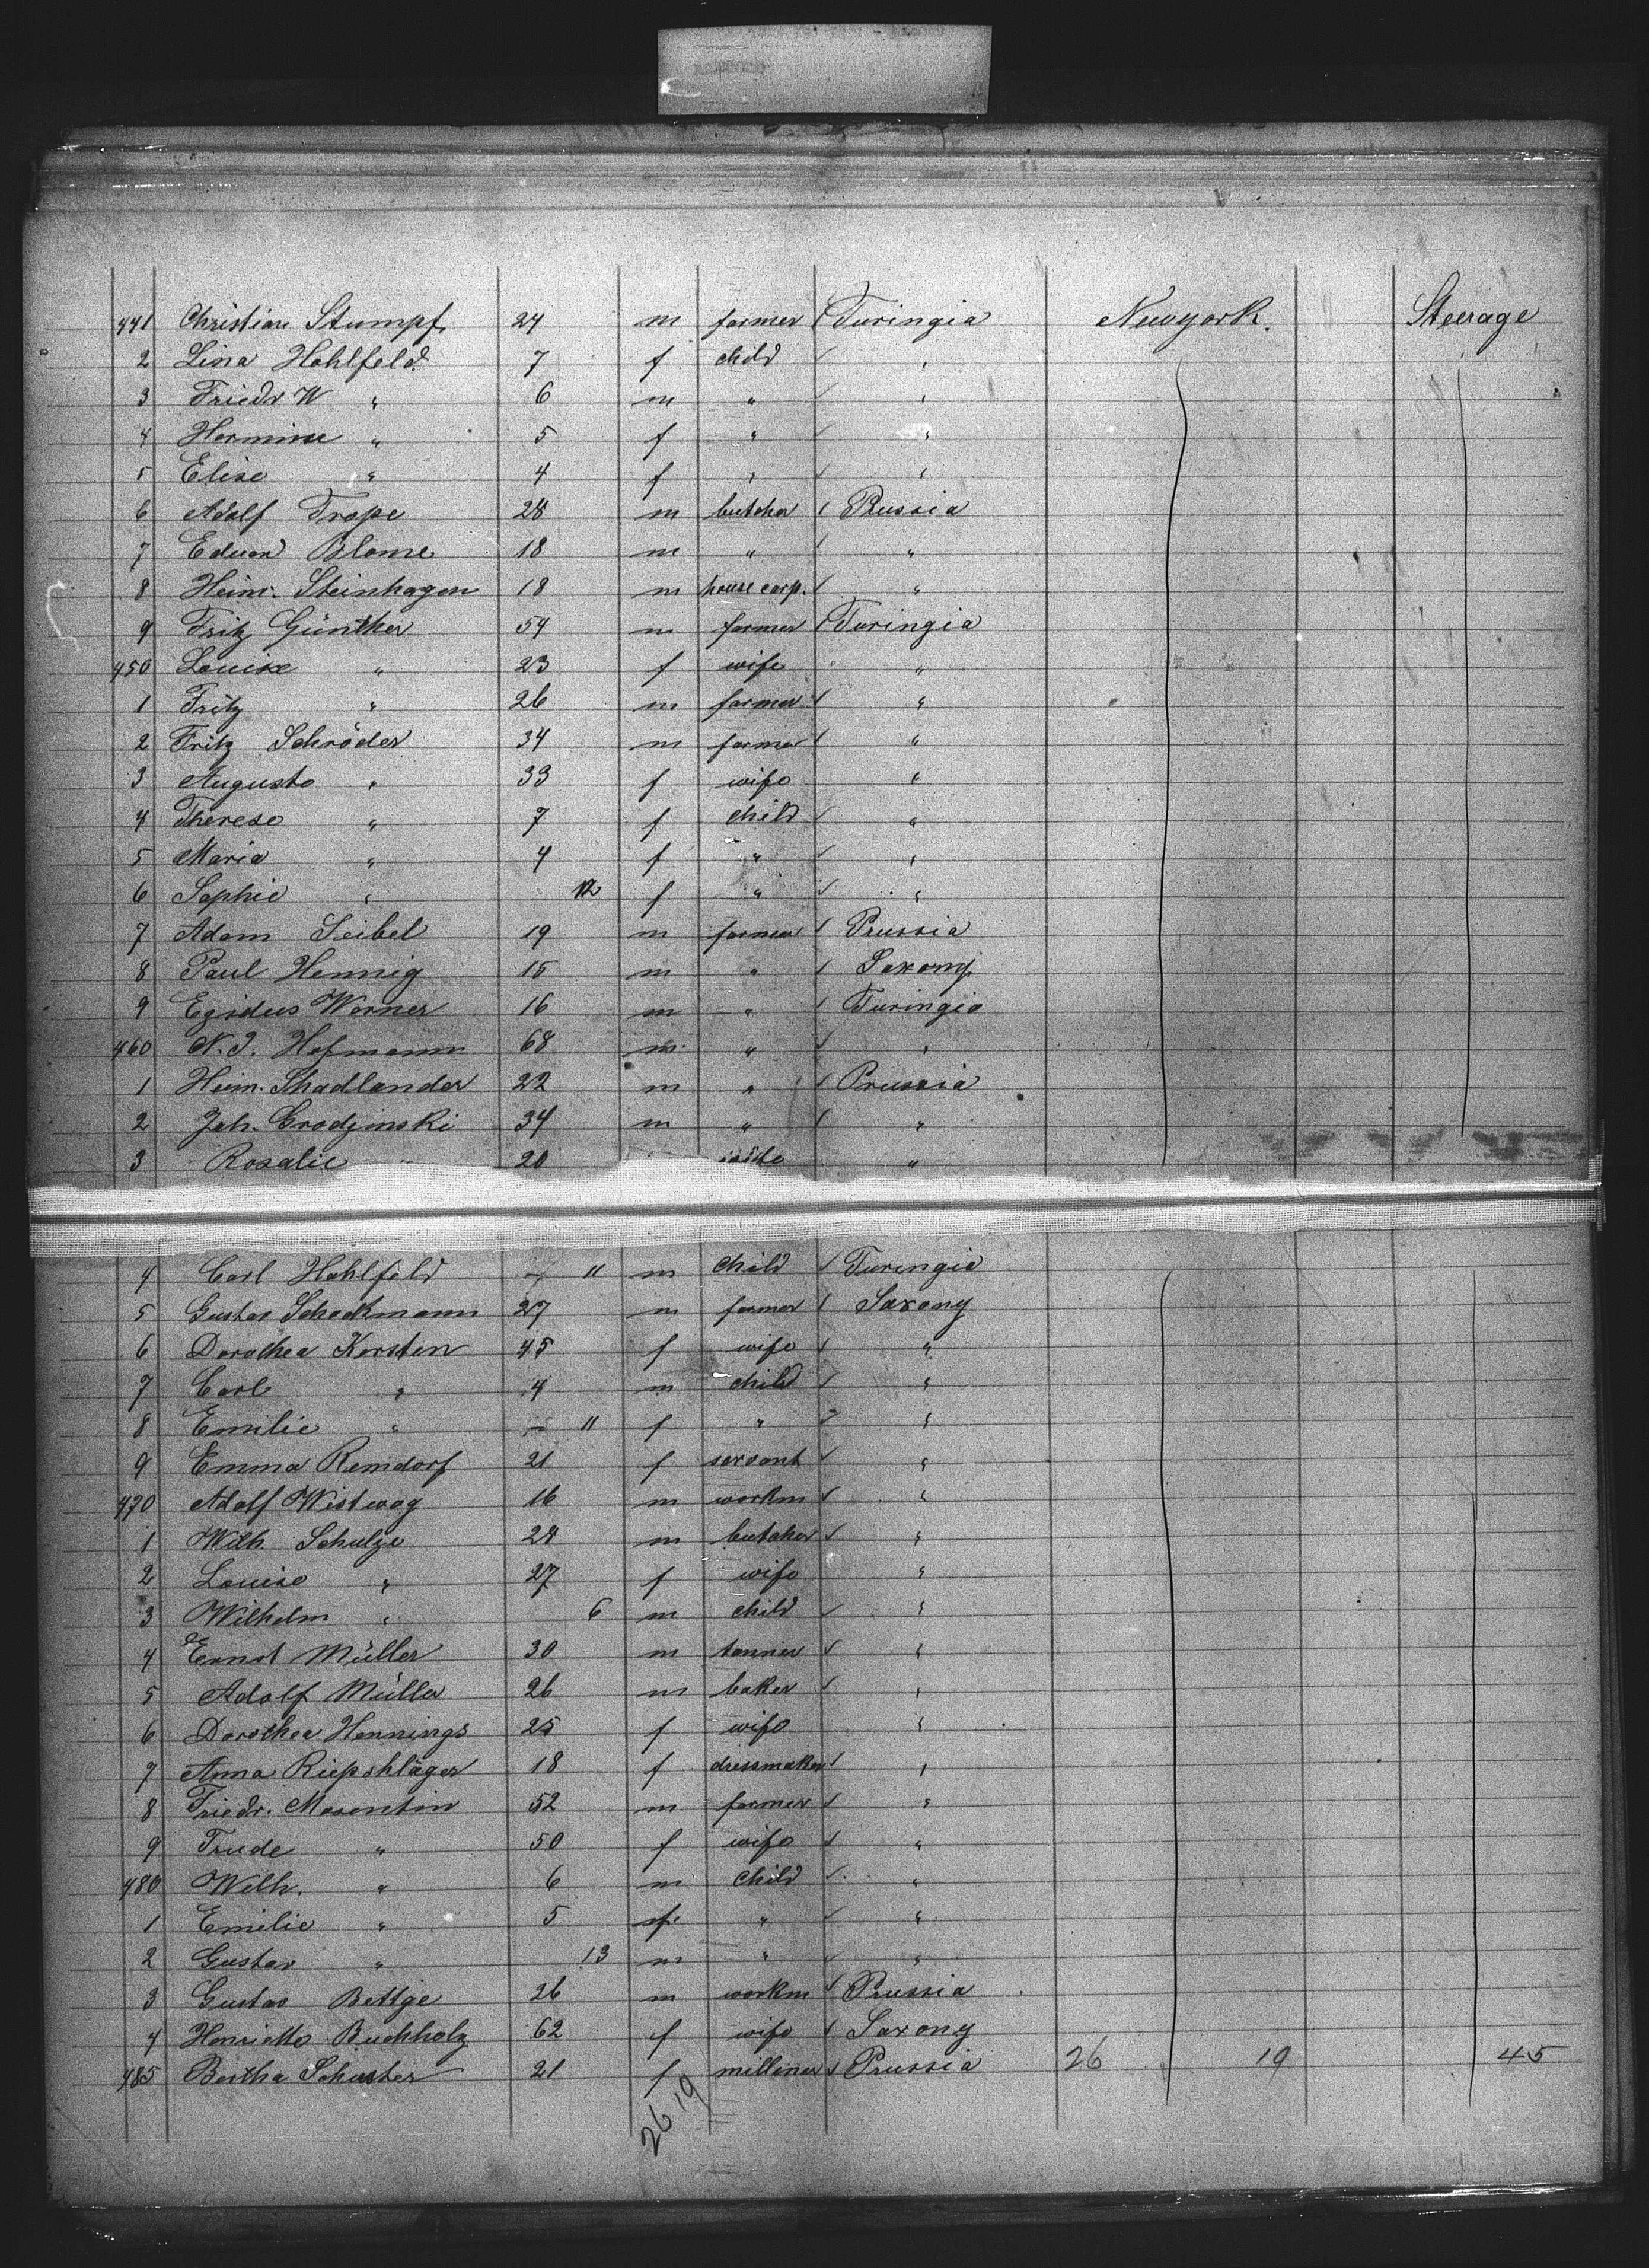 441 Christian Stumpf 24 m farmer / Turingia Newyork. Steerage
2 Lina Hohlfeld 7 f child ✓ "
3 Friedr W " 6 m " ✓ "
4 Hermine " 5 f " ✓ "
5 Elise " 4 f " ✓ "
6 Adolf Trope 28 m butcher / Prussia
7 Eduard Blome 18 m " / "
8 Heinr. Steinhagen 18 m house carp. / "
9 Fritz Günther 54 m farmer / Turingia
450 Louise " 23 f wife " "
1 Fritz " 26 m farmer / "
2 Fritz Schröder 34 m farmer / "
3 Auguste " 33 f wife "
4 Therese " 7 f child ✓ "
5 Maria " 4 f " ✓ "
6 Sophie " 12 f " ✓ "
7 Adam Seibel 19 m farmer / Prussia
8 Paul Hennig 15 m " / Saxony
9 Egidus Werner 16 m " / Turingia
460 N. J. Hofmann 68 m " ✓ "
1 Heinr. Shadlander 22 m " / Prussia
2 Joh. Grodjinski 34 m " / "
3 Rosalie " 20 "
4 Carl Hohlfeld 11 m child ✓ Turingia
5 Gustav Schockmann 27 m farmer / Saxony
6 Dorothea Kersten 45 f wife / "
7 Carl " 4 m child ✓ "
8 Emilie " 11 f " "
9 Emma Remdorf 21 f servant ✓ "
470 Adolf Wistwag 16 m workm ✓ "
1 Wilh. Schulze 28 m butcher ✓ "
2 Louise " 27 f wife "
3 Wilhelm " 6 m child ✓ "
4 Ernst Müller 30 m tanner ✓ "
5 Adolf Müller 26 m baker ✓ "
6 Dorothea Hennings 25 f wife "
7 Anna Riepshläger 18 f dressmaker / "
8 Friedr. Masentin 52 m farmer ✓ "
9 Trude " 50 f wife ✓ "
480 Wilh. " 6 m child ✓ "
1 Emilie " 5 f " ✓ "
2 Gustav " 13 m " ✓ "
3 Gustav Bettge 26 m workm ✓ Prussia
4 Henriette Buchholz 62 f wife ✓ Saxony
485 Bertha Schuster 21 f milliner ✓ Prussia 26 19 45
26 19